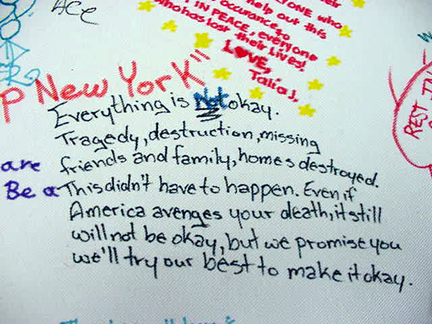 Ace
ONE who
help out this
occurance to
IN PEACE, everyone
who has lost their lives!
LOVE,
Talia J.
P NEW YORK"
REST
Everything is Not okay.
Tragedy, destruction, missing
are
friends and family, homes destroyed.
Be a
This didn't have to happen. Even if
America avenges your death, it still
will not be okay, but we promise you
we'll try our best to make it okay.